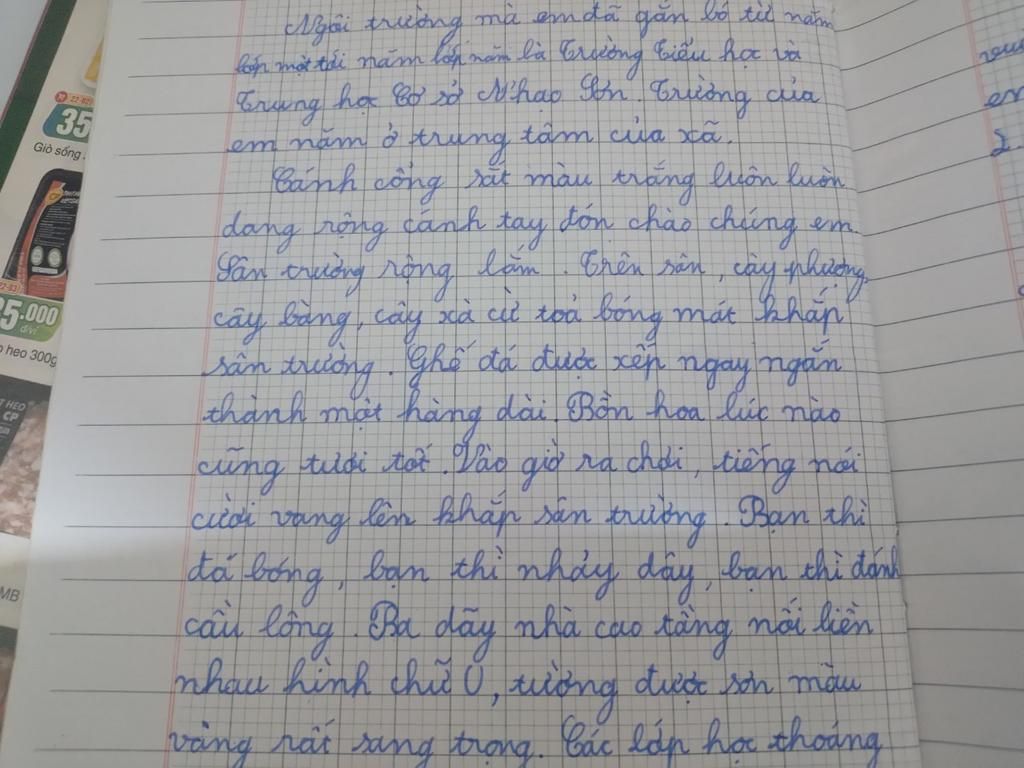 Ngôi trường mà em đã gắn bó từ năm
lớp một tới năm lớp năm là Trường Tiểu học và
Trung học Cơ sở Nhạo Sơn. Trường của
em nằm ở trung tâm của xã.
Cánh cổng sắt màu trắng luôn luôn
dang rộng cánh tay đón chào chúng em.
Sân trường rộng lắm. Trên sân, cây phượng,
cây bàng, cây xà cừ toả bóng mát khắp
sân trường. Ghế đá được xếp ngay ngắn
thành một hàng dài. Bồn hoa lúc nào
cũng tươi tốt. Vào giờ ra chơi, tiếng nói
cười vang lên khắp sân trường. Bạn thì
đá bóng, bạn thì nhảy dây, bạn thì đánh
cầu lông. Ba dãy nhà cao tầng nối liền
nhau hình chữ U, tường được sơn màu
vàng rất sang trọng. Các lớp học thoáng
em
2.
35
Giò sống
25.000
đ/vỉ
heo 300g
T HEO
CP
MB